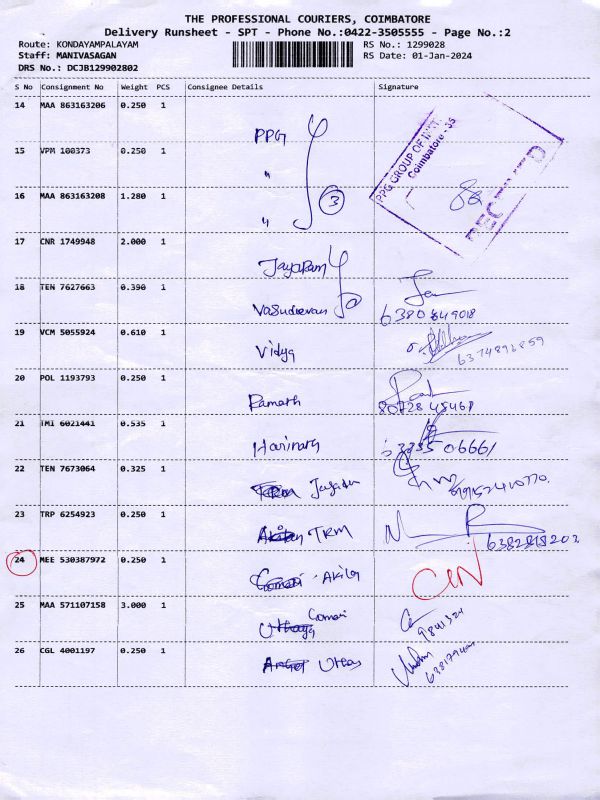 THE PROFESSIONAL COURIERS, COIMBATORE
Delivery Runsheet - SPT - Phone No.:0422-3505555 - Page No.:2
Route: KONDAYAMPALAYAM
Staff: MANIVASAGAN
DRS No.: DCJB129902802
RS No.: 1299028
RS Date: 01-Jan-2024
S No Consignment No Weight PCS Consignee Details Signature
14 MAA 863163206 0.250 1 PPG
15 VPM 100373 0.250 1 "
16 MAA 863163208 1.280 1 " 3
PPG GROUP OF INST.
Coimbatore - 35
RECEIVED
17 CNR 1749948 2.000 1 Jayaram
18 TEN 7627663 0.390 1 Vasudevan
19 VCM 5055924 0.610 1 Vidya 6374892859
20 POL 1193793 0.250 1
21 TMI 6021441 0.535 1
22 TEN 7673064 0.325 1
23 TRP 6254923 0.250 1 TRM
24 MEE 530387972 0.250 1 Akila
25 MAA 571107158 3.000 1
26 CGL 4001197 0.250 1